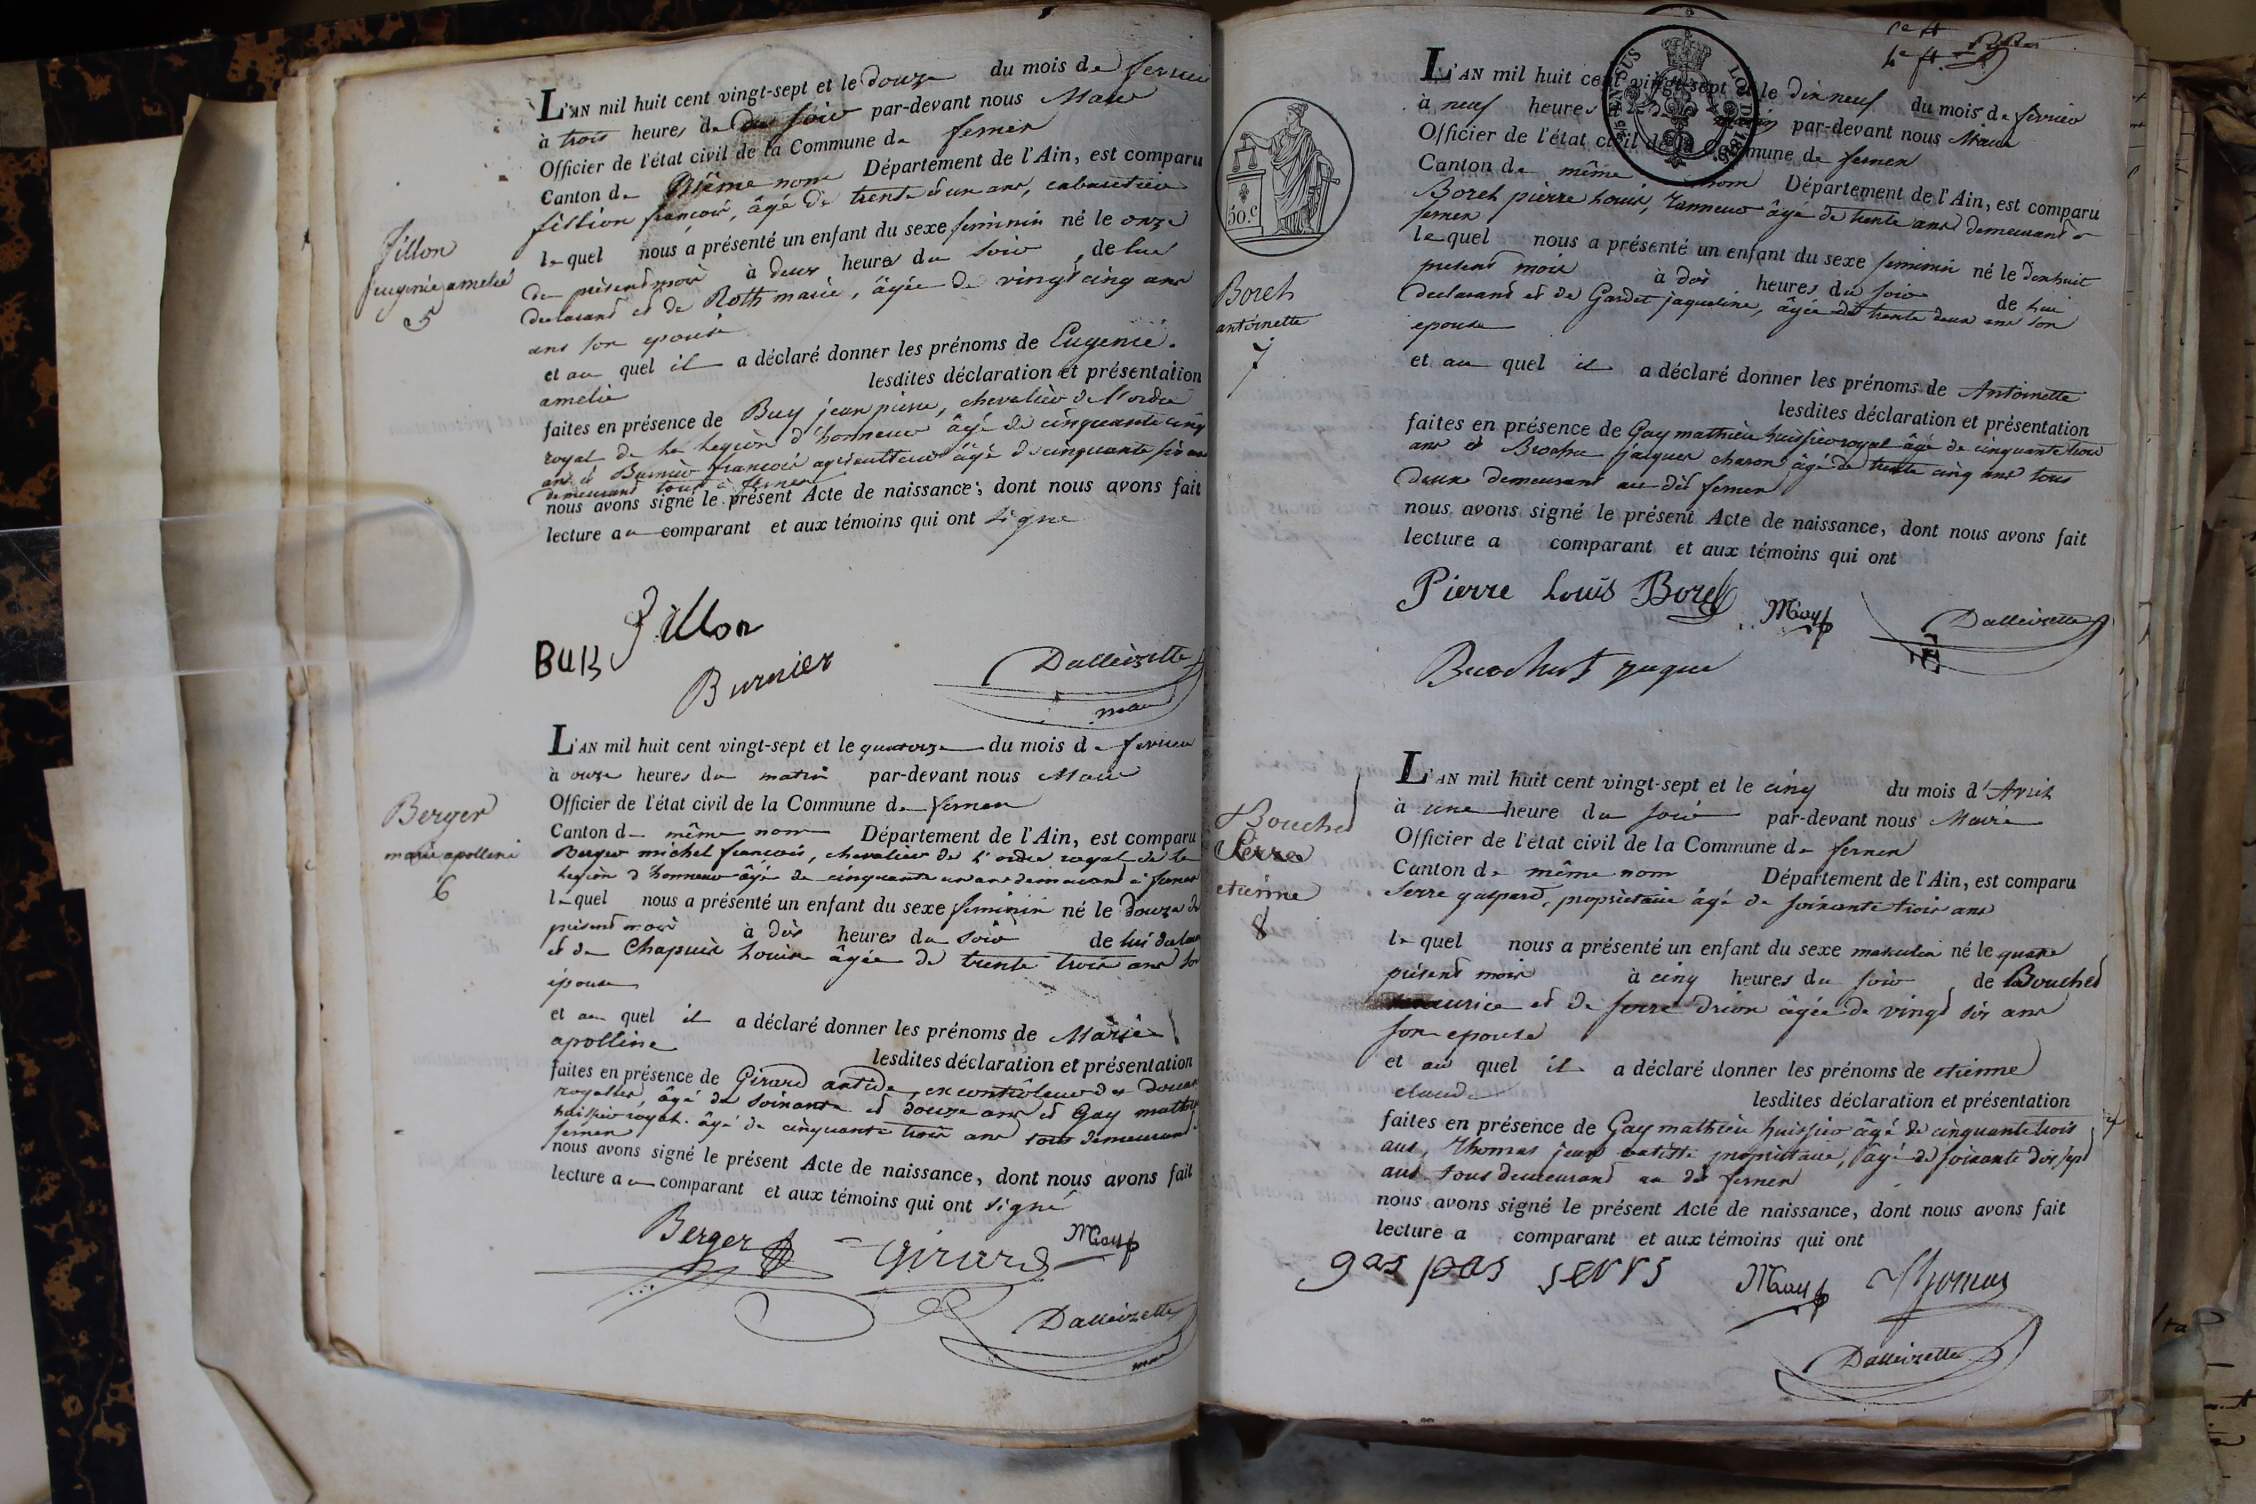 L'AN mil huit cent vingt-sept et le douze du mois de fevrier
à trois heures de du soir par-devant nous Maire
Officier de l'état civil de la Commune de fernex
Canton de même nom Département de l'Ain, est comparu
fillion françois, âgé de trente d'un ans, cabaretier
Fillon
Eugenie amelie
5
lequel nous a présenté un enfant du sexe feminin né le onze
du présent mois à deux heures du soir, de lui
declarant et de Roth marie, âgée de vingt cinq ans
ans son epouse
et au quel il a déclaré donner les prénoms de Eugenie
amelie lesdites déclaration et présentation
faites en présence de Buy jean pierre, chevalier de l'ordre
royal de la Legion d'honneur âgé de cinquante cinq
ans et Burnier francois agriculteur âgé de cinquante six ans
demeurant tous à fernex
nous avons signé le présent Acte de naissance, dont nous avons fait
lecture au comparant et aux témoins qui ont signé
Fillon
Burnier
Dalleizette
maire
L'AN mil huit cent vingt-sept et le quatorze du mois de fevrier
à onze heures du matin par-devant nous Maire
Officier de l'état civil de la Commune de fernex
Berger
marie apolline
6
Canton de même nom Département de l'Ain, est comparu
Berger michel francois, chevalier de l'ordre royal de la
Legion d'honneur âgé de cinquante un ans demeurant à fernex
lequel nous a présenté un enfant du sexe feminin né le douze du
présent mois à dix heures du soir de lui declarant
et de Chapuis Louise âgée de trente trois ans son
épouse
et au quel il a déclaré donner les prénoms de Marie
apolline lesdites déclaration et présentation
faites en présence de Girard antide, ex contrôleur des douanes
royalles, âgé de soixante et douze ans et Gay mathieu
huissier royal. âgé de cinquante trois ans tous demeurant à
fernex
nous avons signé le présent Acte de naissance, dont nous avons fait
lecture au comparant et aux témoins qui ont signé
Berger Girard MGay
Dalleizette
maire
L'AN mil huit cent vingt-sept et le dix neuf du mois de fevrier
à neuf heures du matin par-devant nous Maire
Officier de l'état civil de la Commune de fernex
Canton de même nom Département de l'Ain, est comparu
Borel pierre Louis, tanneur âgé de trente ans demeurant à
fernex
50.c
Borel
antoinette
7
lequel nous a présenté un enfant du sexe feminin né le dix huit
present mois à dix heures du soir de lui
declarant et de Gardet jaqueline, âgée de trente deux ans son
epouse
et au quel il a déclaré donner les prénoms de Antoinette
lesdites déclaration et présentation
faites en présence de Gay mathieu huissier royal âgé de cinquante trois
ans et Brochu jacques charon âgé de trente cinq ans tous
deux demeurant au dit fernex
nous avons signé le présent Acte de naissance, dont nous avons fait
lecture a comparant et aux témoins qui ont
Pierre Louis Borel MGay Dalleizette
L'AN mil huit cent vingt-sept et le cinq du mois d'Avril
à une heure du soir par-devant nous Maire
Officier de l'état civil de la Commune de fernex
Canton de même nom Département de l'Ain, est comparu
Serre gaspard, propriétaire âgé de soixante trois ans
Bouchet
Serre
etienne
8
lequel nous a présenté un enfant du sexe masculin né le quatre
présent mois à cinq heures du soir, de Bouchet
maurice et de serre âgée de vingt six ans
son epouse
et au quel il a déclaré donner les prénoms de etienne
claude lesdites déclaration et présentation
faites en présence de Gay mathieu huissier âgé de cinquante trois
ans, Thomas jean batiste propriétaire, âgé de soixante dix sept
ans tous demeurant au dit fernex
nous avons signé le présent Acte de naissance, dont nous avons fait
lecture a comparant et aux témoins qui ont
gaspas serrs MGay Thomas
Dalleizette